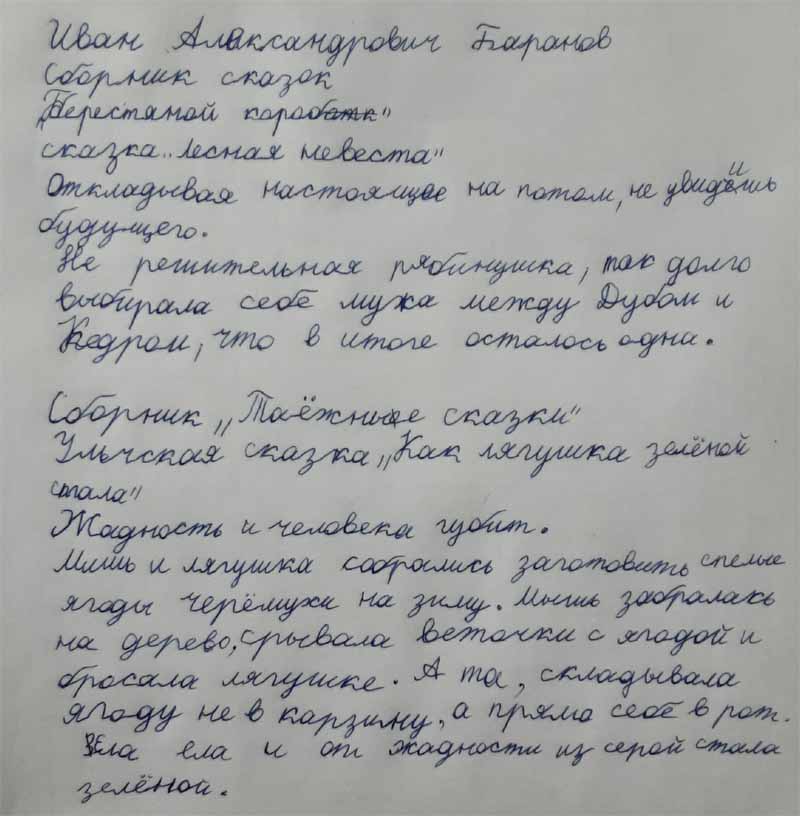 Иван Александрович Баранов
Сборник сказок
„Берестяной короб"
сказка „Лесная невеста"
Откладывая настоящее на потом, не увидишь
будущего.
Не решительная рябинушка, так долго
выбирала себе мужа между Дубом и
Кедром, что в итоге осталось одна.
Сборник „Таёжные сказки"
Ульчская сказка „Как лягушка зелёной
стала"
Жадность и человека губит.
Мышь и лягушка собрались заготовить спелые
ягоды черёмухи на зиму. Мышь забралась
на дерево, срывала веточки с ягодой и
бросала лягушке. А та, складывала
ягоду не в корзину, а прямо себе в рот.
Ела ела и от жадности из серой стала
зелёной.